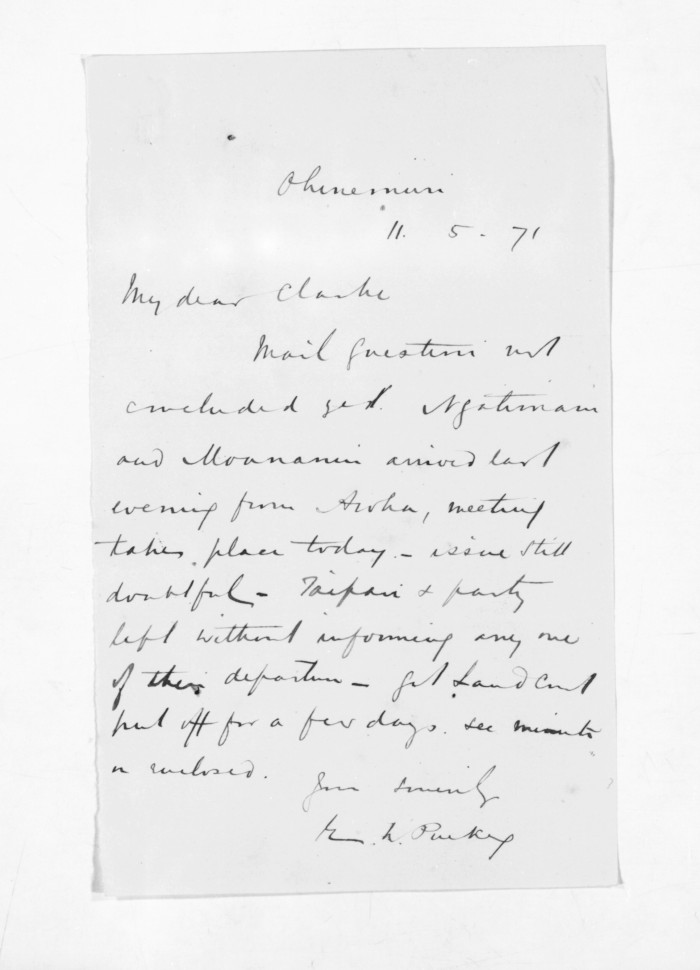 Ohinemuri
11. 5. 71
My dear Clarke
Mail question not
concluded yet. Ngatimaru
and Moananui arrived last
evening from Aroha, meeting
takes place today – issue still
doubtful – Taipari & party
left without informing any one
of their departure – get Land Court
put off for a few days. see minute
on enclosed.
Yours sincerely
E. W. Puckey